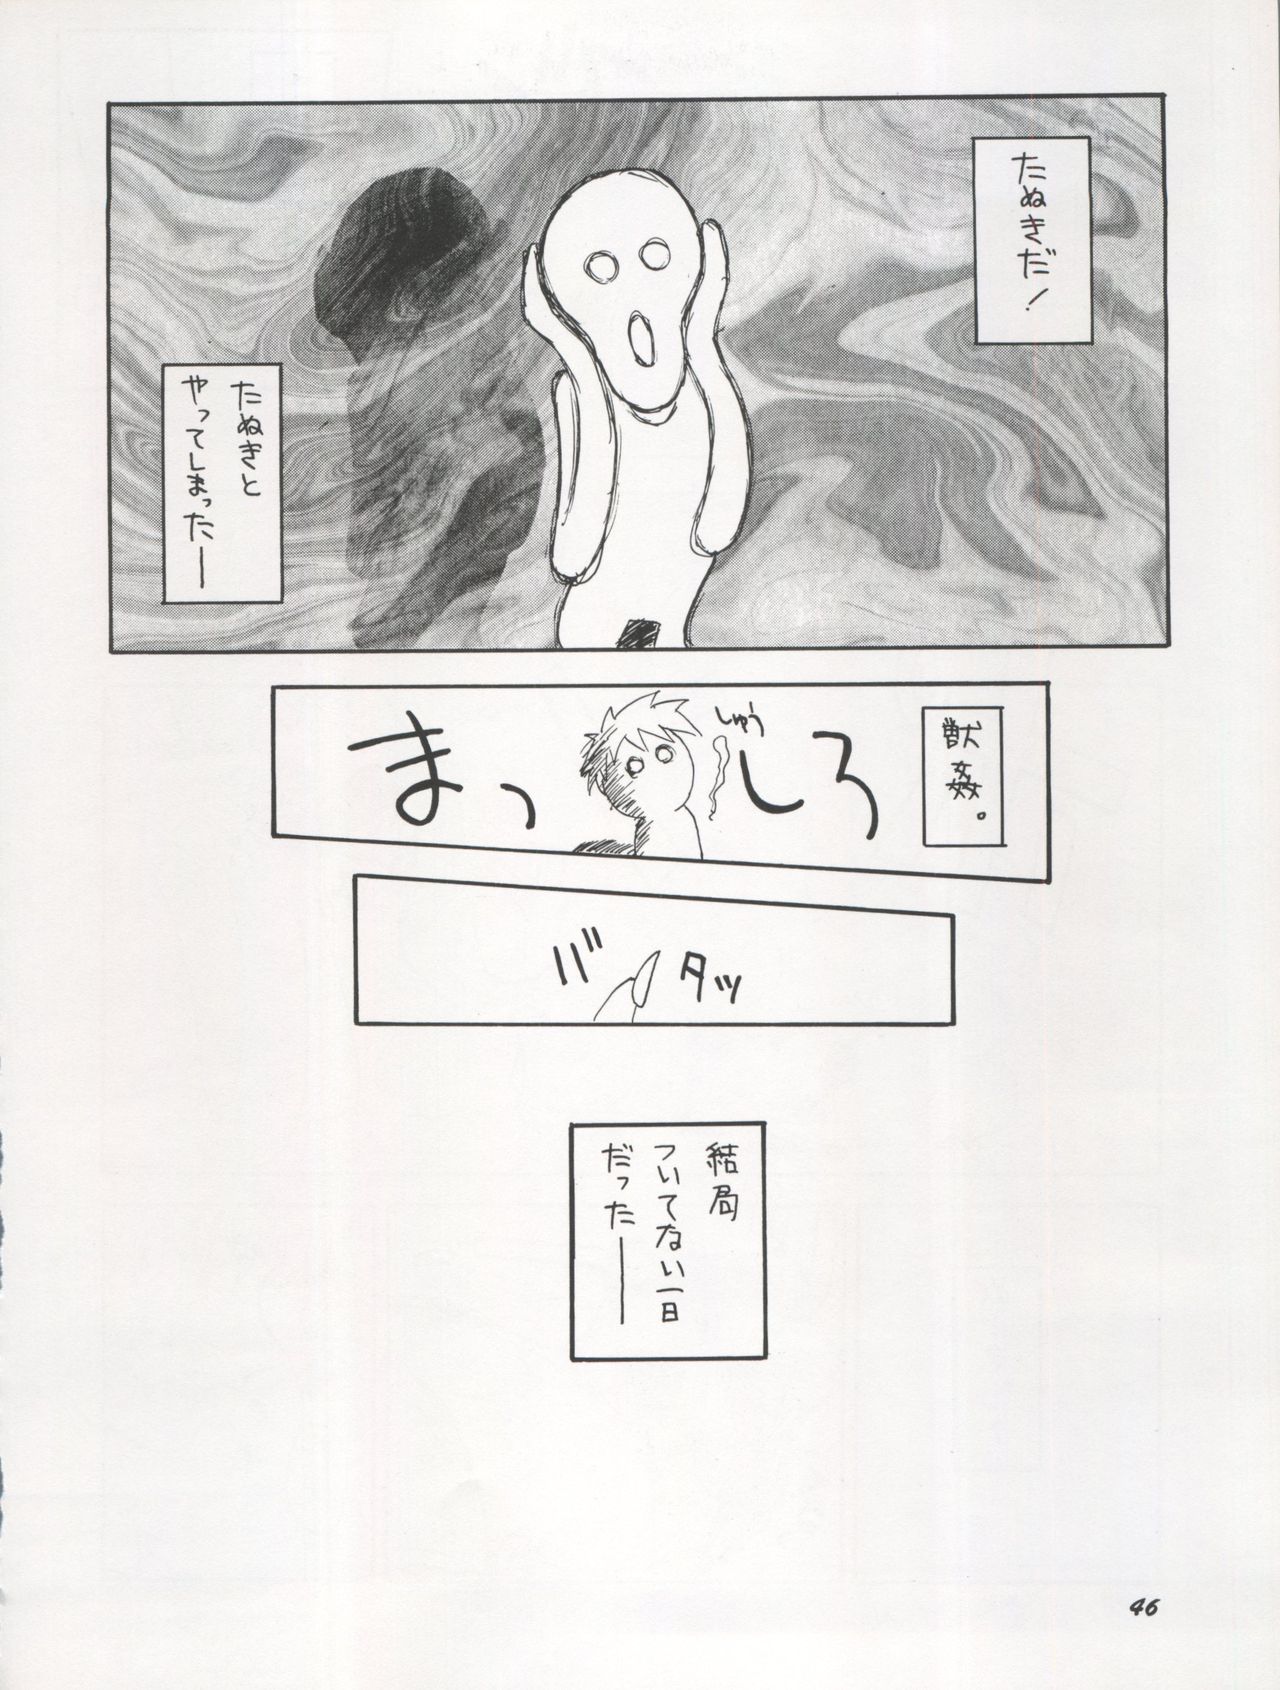 たぬきだ！
たぬきと
やってしまったー
獣姦。
まっしろ
しゅう
バタッ
結局
ついてない一日
だったー
46